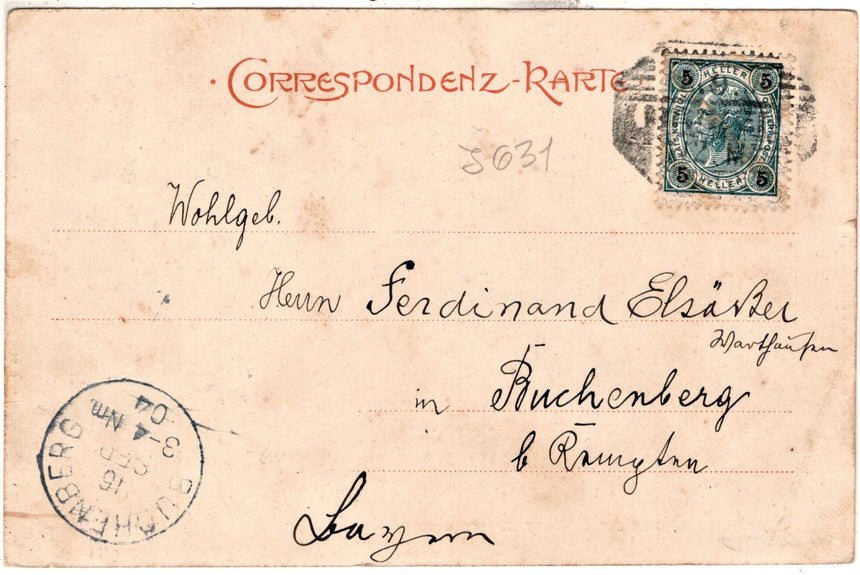 · CORRESPONDENZ-KARTE ·
5 HELLER 5
5 HELLER 5
J 631
Wohlgeb.
Herrn Ferdinand Elsäßer
Warthausen
in Buchenberg
b Kempten
Bayern
BUCHENBERG
16
SEP
04
3-4 Nm.